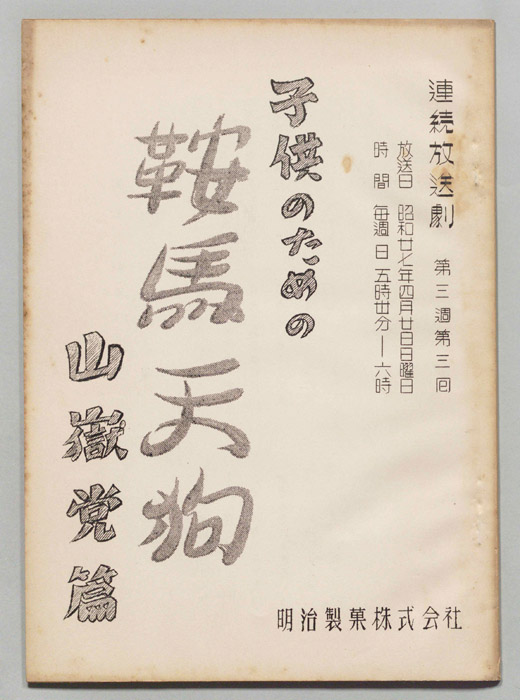 連続放送劇 第三週第三回
放送日 昭和廿七年四月廿日日曜日
時間 毎週日 五時卅分—六時
子供のための
鞍馬天狗
山嶽党篇
明治製菓株式会社